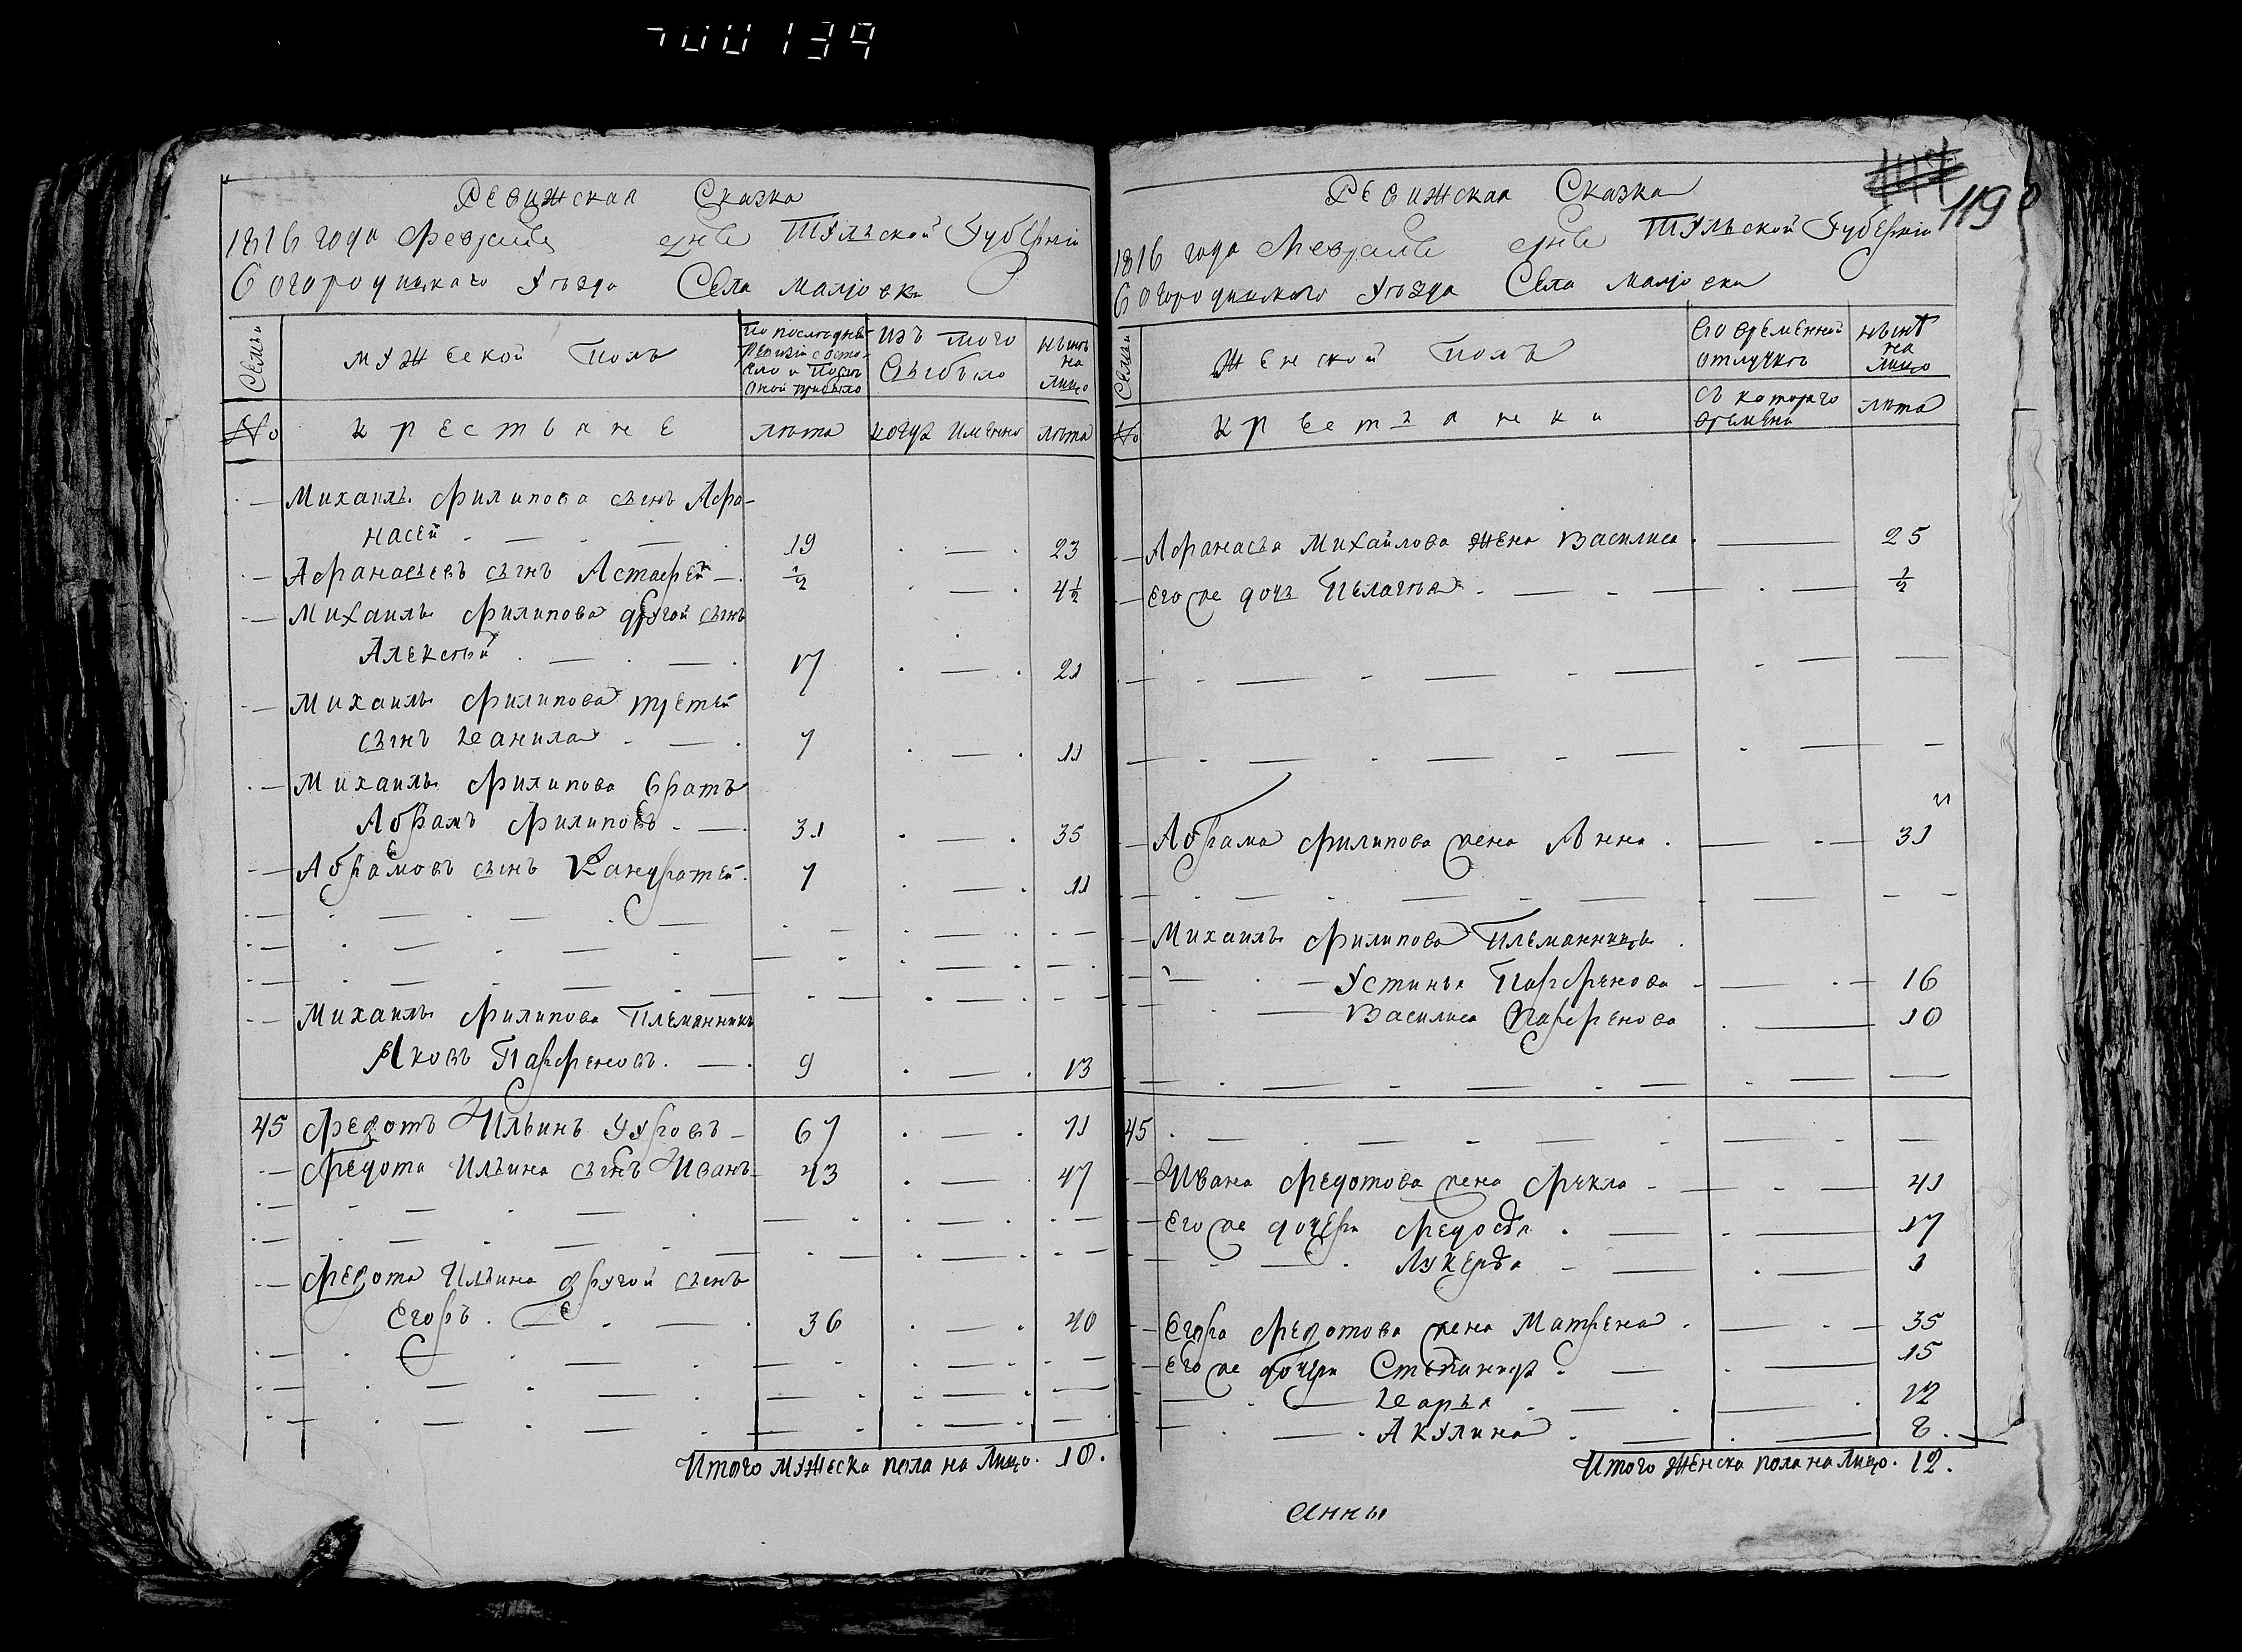 700139
119
Ревижская Сказка
1816 года февраля дня Тульской Губернiи
Богородицкаго Уѣзда Села Малiовки
Семьи
мужеской полъ
По последней ревизiи состояло и после оной прибыло
Изъ того Выбыло
нынѣ на лицо
№
крестьяне
лѣта
когда Именно
лѣта
Михаилы филипова сынъ Афо-
насей 19 23
Афанасьевъ сынъ Астафей ½ 4½
Михаилы филипова другой сынъ
Алексѣй 17 21
Михаилы филипова третей
сынъ Данила 7 11
Михаилы филипова братъ
Абрамъ филиповъ 31 35
Абрамовъ сынъ Кандратей 7 11
Михаилы филипова Племянникъ
Яковъ Парфеновъ 9 13
45 Федотъ Ильинъ 67 71
Федота Ильина сынъ Иванъ 43 47
Федота Ильина другой сынъ
Егоръ 36 40
Итого мужеска пола на Лицо. 10.
Ревижская Сказка
1816 года Февраля дня Тульской Губернiи
Богородицкаго Уѣзда Села Малiовки
Семьи
Женской полъ
Во временной отлучкѣ
нынѣ на лицо
№
крестьянки
съ котораго времени
лѣта
Афанасья Михайлова жена Василиса 25
Его же дочь Пелагѣя ½
Абрама филипова жена Анна 31
Михаилы филипова Племянницы
Устинья Парфенова 16
Василиса Парфенова 10
45
Ивана Федотова жена Фекла 41
Его же дочери Федосья 17
Лукерья 1
Егора Федотова жена Матрена 35
Его же дочери Степанида 15
Дарья 12
Акулина 8.
Итого Женска пола на Лицо. 12.
Анны